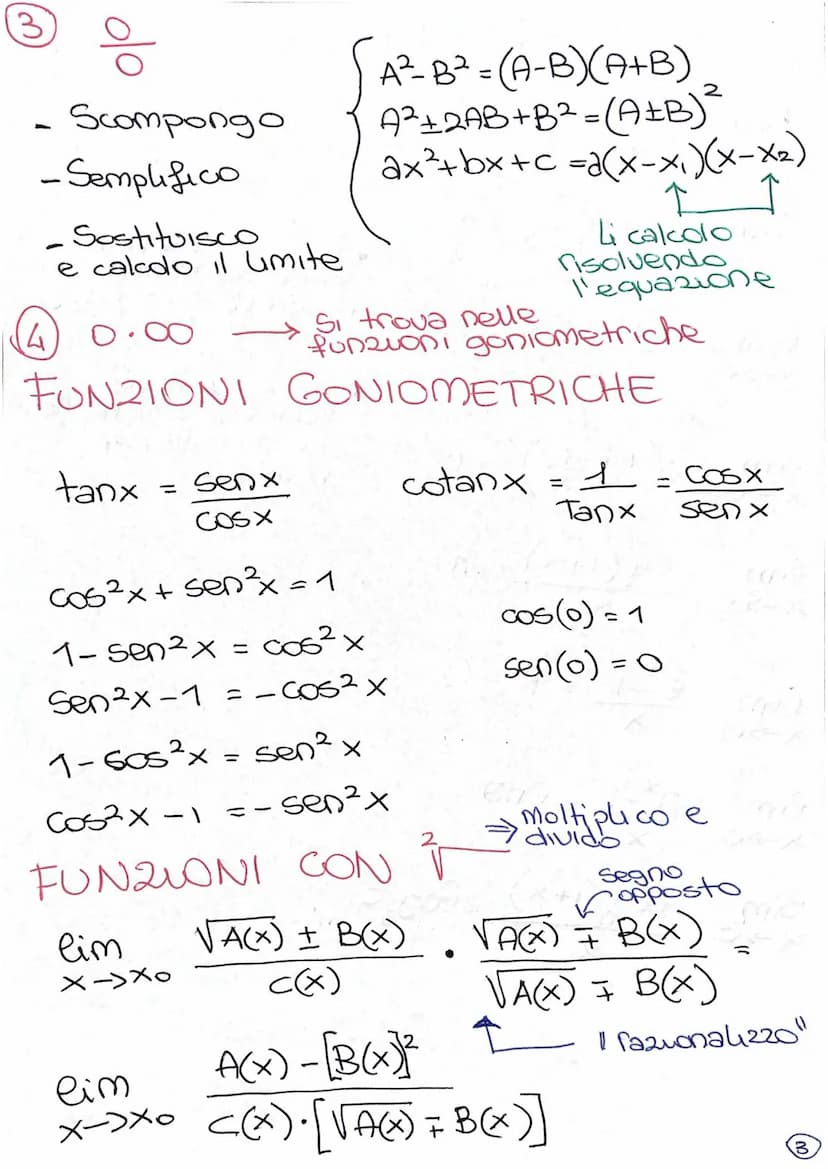 ③ 0/0
- Scompongo
- Semplifico
- Sostituisco
e calcolo il limite
A²-B² = (A-B)(A+B)
A²±2AB+B² = (A±B)²
ax²+bx+c = a(x-x₁)(x-x₂)
Li calcolo
risolvendo
l'equazione
④ 0·∞ → Si trova nelle
funzioni goniometriche
FUNZIONI GONIOMETRICHE
tanx = senx/cosx
cotanx = 1/Tanx = cosx/senx
cos²x + sen²x = 1
1 - sen²x = cos²x
sen²x - 1 = -cos²x
1 - cos²x = sen²x
cos²x - 1 = -sen²x
cos(0) = 1
sen(0) = 0
FUNZIONI CON ²√
⇒ Moltiplico e
divido
segno
opposto
lim x→x₀ (√A(x) ± B(x))/C(x) · (√A(x) ∓ B(x))/(√A(x) ∓ B(x)) =
"razionalizzo"
lim x→x₀ (A(x) - [B(x)]²)/(C(x)·[√A(x) ∓ B(x)])
3